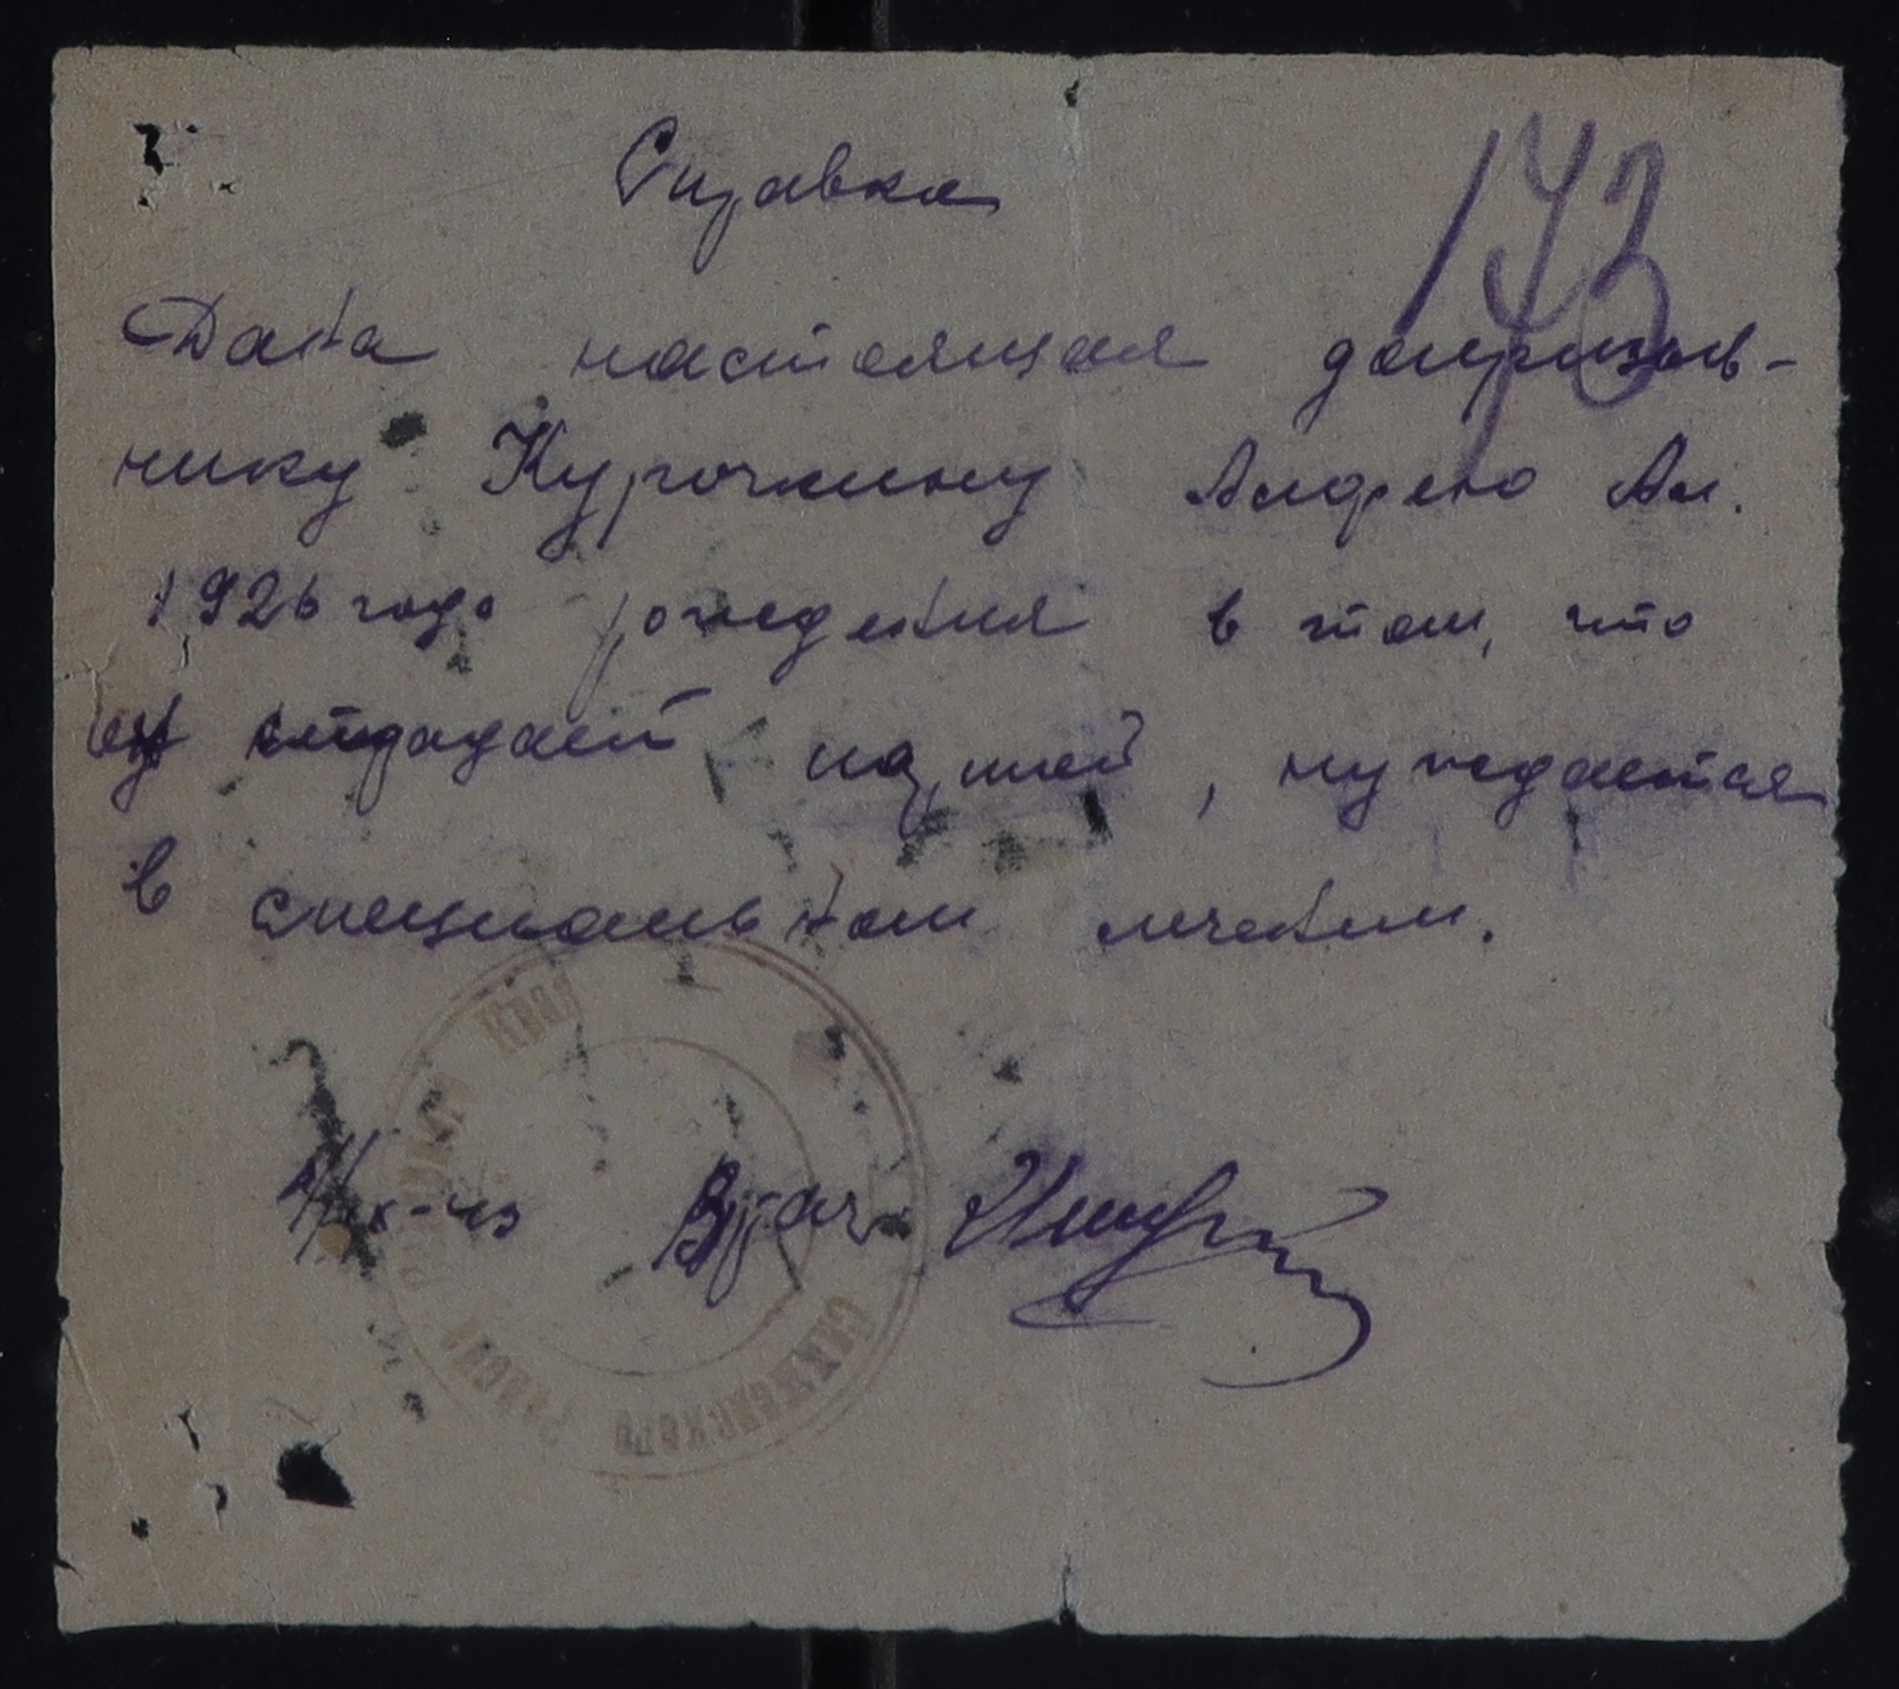 Справка
173
Дана настоящая допризыв-
нику Курочкину Андрею Ал.
1926 года рождения в том, что
страдает , нуждается
в специальном лечении.
Врач
САКМАРСКОГО